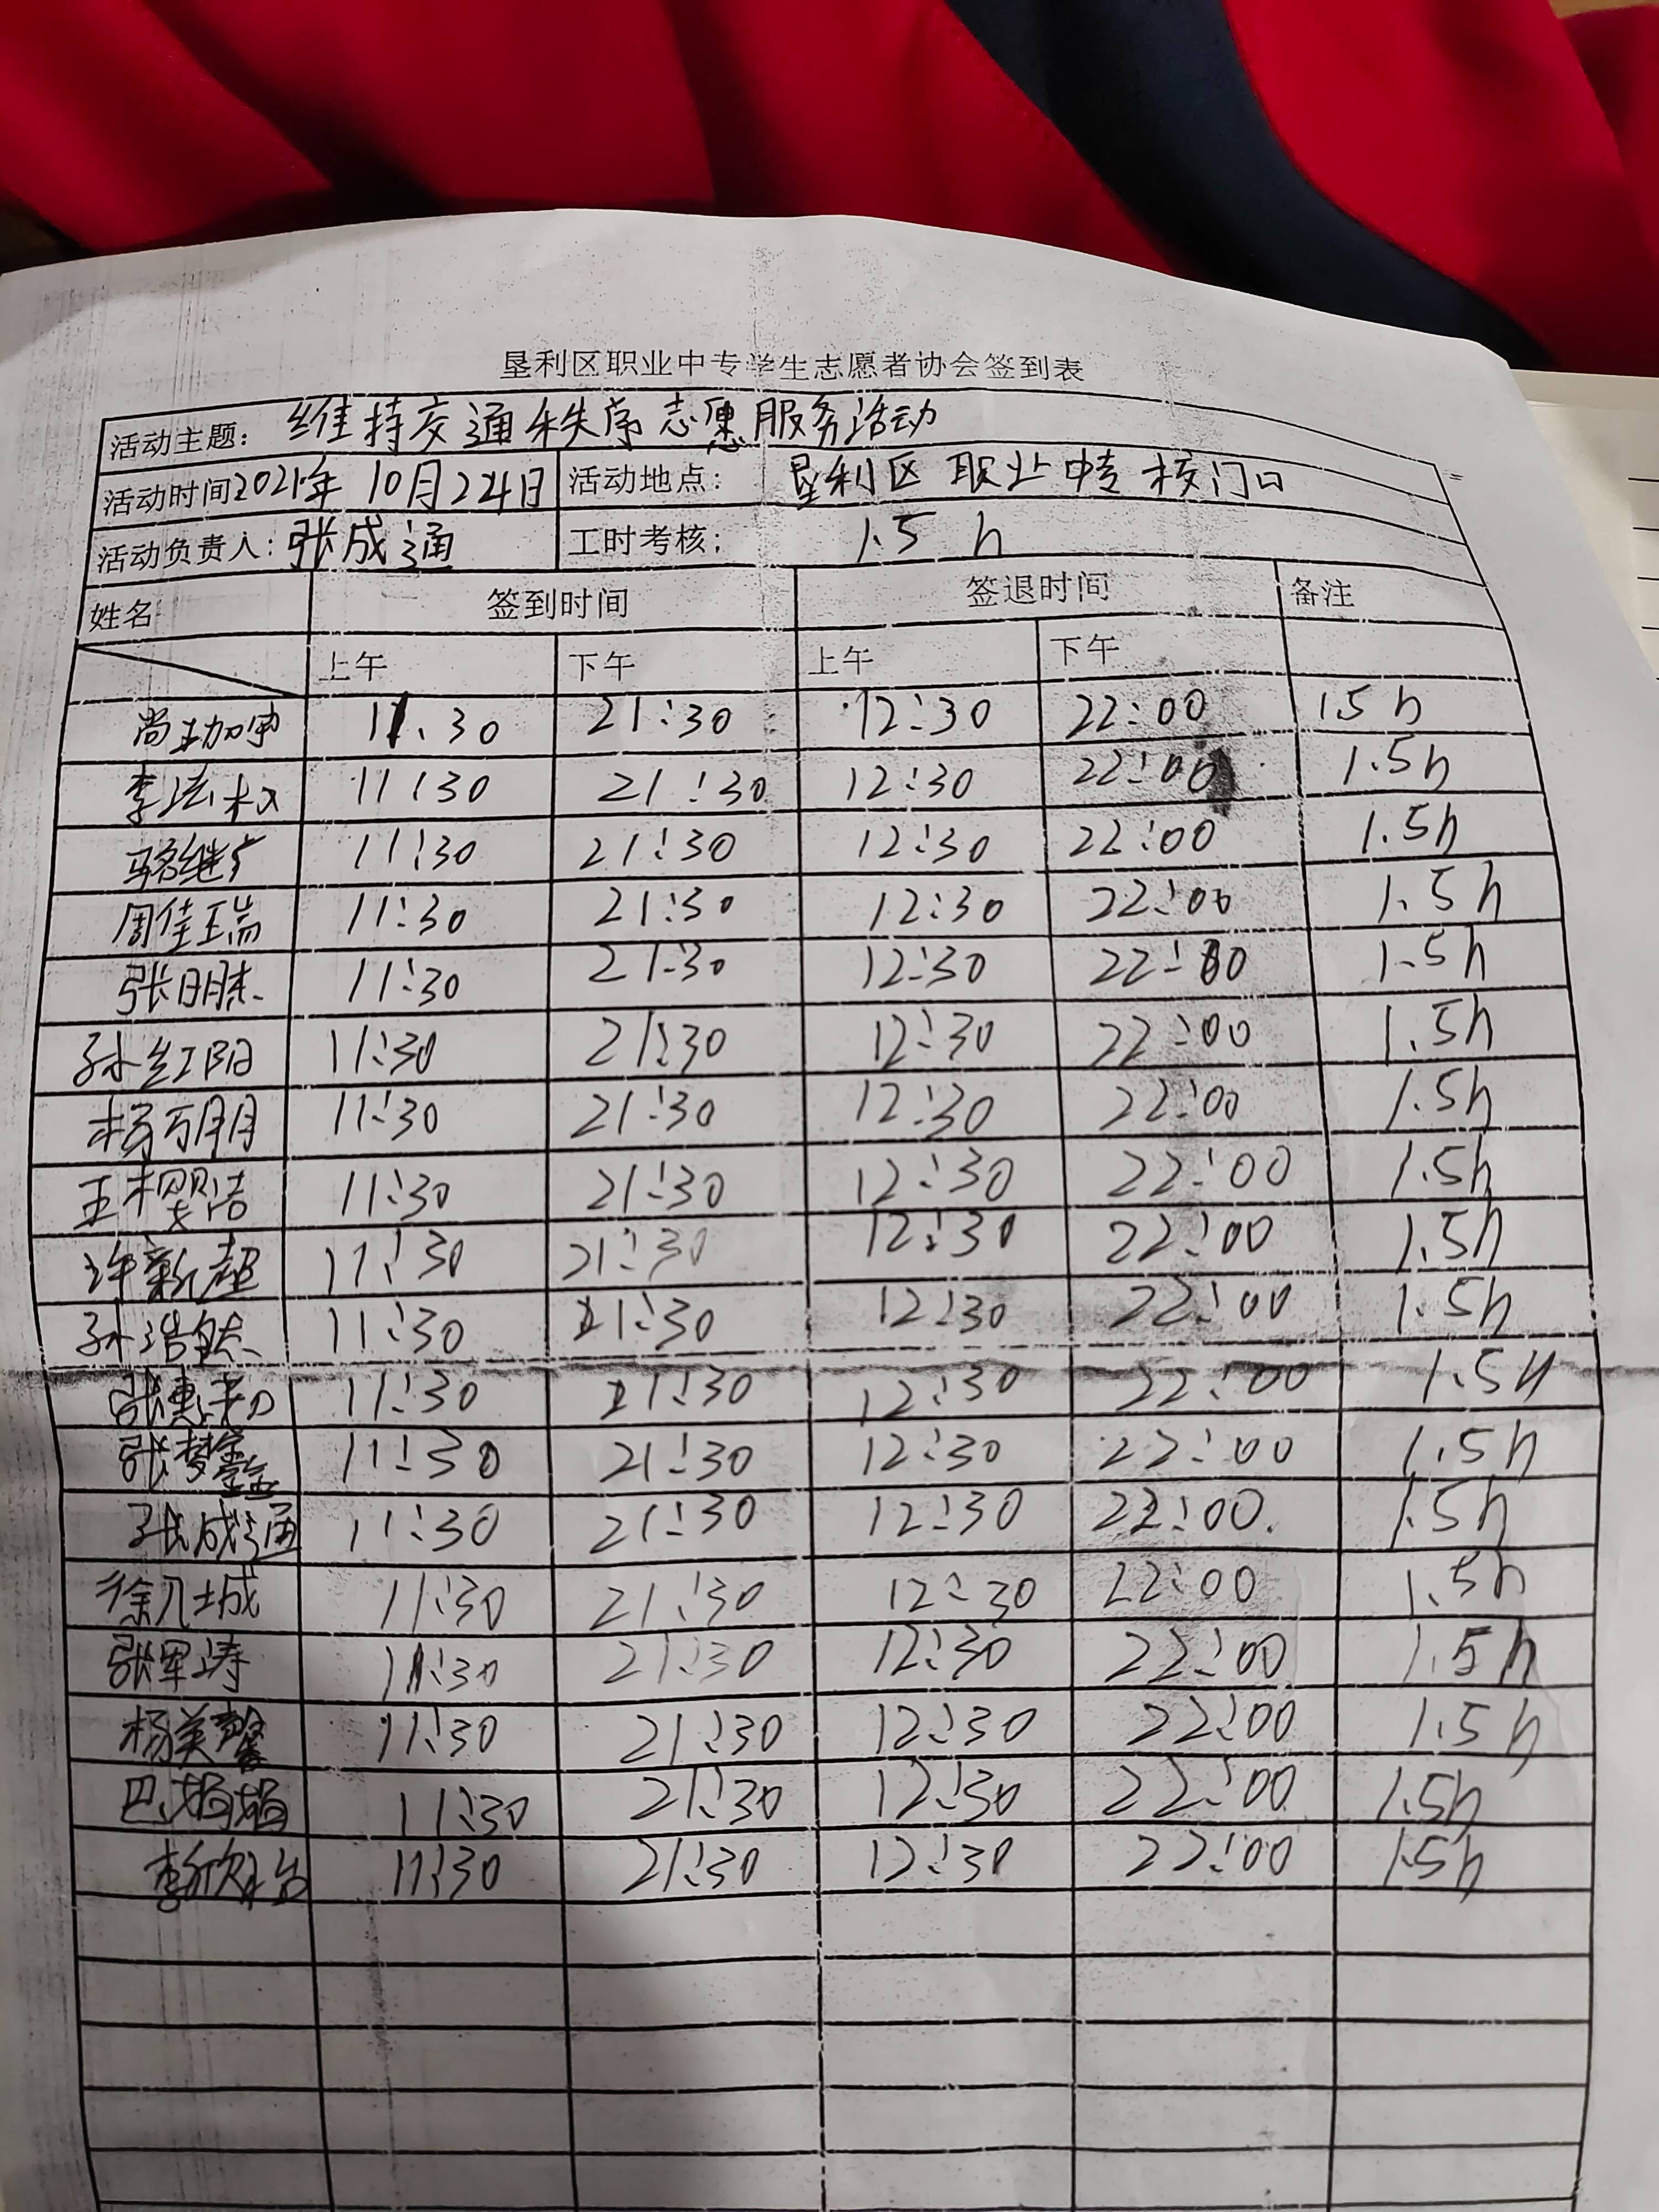 垦利区职业中专学生志愿者协会签到表
活动主题: 维持交通秩序志愿服务活动
活动时间2021年10月24日 活动地点: 垦利区职业中专校门口
活动负责人: 张成通 工时考核: 1.5 h
姓名 签到时间 签退时间 备注
上午 下午 上午 下午
11:30 21:30 12:30 22:00 1.5h
11:30 21:30 12:30 22:00 1.5h
11:30 21:30 12:30 22:00 1.5h
周佳瑞 11:30 21:30 12:30 22:00 1.5h
11:30 21:30 12:30 22:00 1.5h
孙红阳 11:30 21:30 12:30 22:00 1.5h
杨万朋 11:30 21:30 12:30 22:00 1.5h
11:30 21:30 12:30 22:00 1.5h
许新超 11:30 21:30 12:30 22:00 1.5h
孙浩然 11:30 21:30 12:30 22:00 1.5h
11:30 21:30 12:30 22:00 1.5h
张梦鑫 11:30 21:30 12:30 22:00 1.5h
张成通 11:30 21:30 12:30 22:00 1.5h
徐凡城 11:30 21:30 12:30 22:00 1.5h
张军涛 11:30 21:30 12:30 22:00 1.5h
杨美馨 11:30 21:30 12:30 22:00 1.5h
巴娟娟 11:30 21:30 12:30 22:00 1.5h
11:30 21:30 12:30 22:00 1.5h